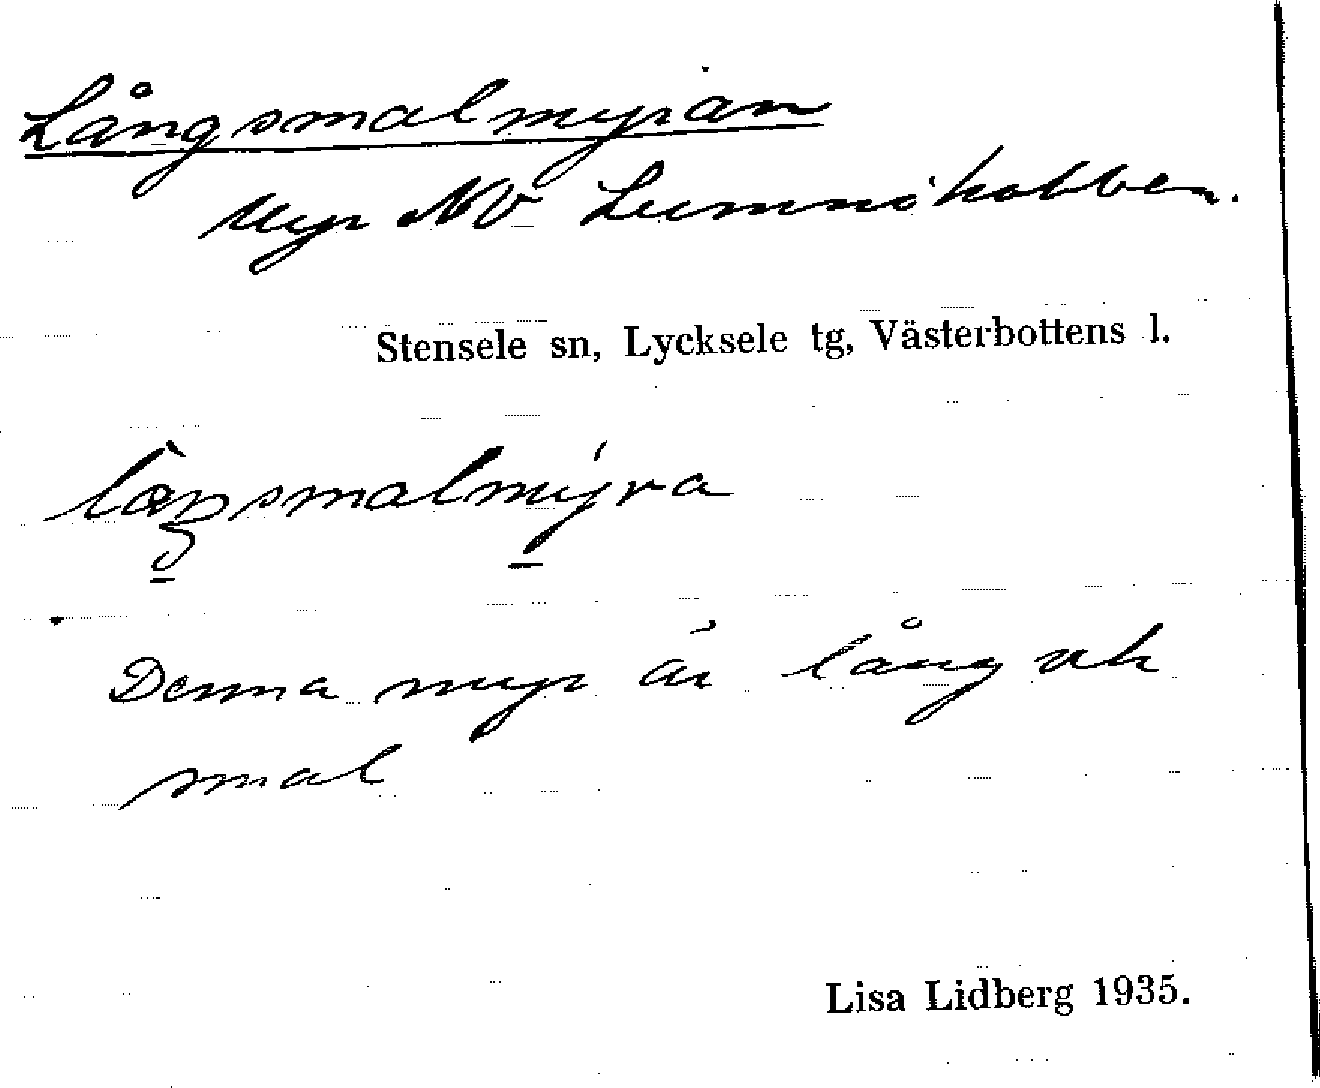 Långsmalmyran
Myr NV Lumnökobben.
Stensele sn, Lycksele tg, Västerbottens l.
Denna myr är lång och
smal
Lisa Lidberg 1935.